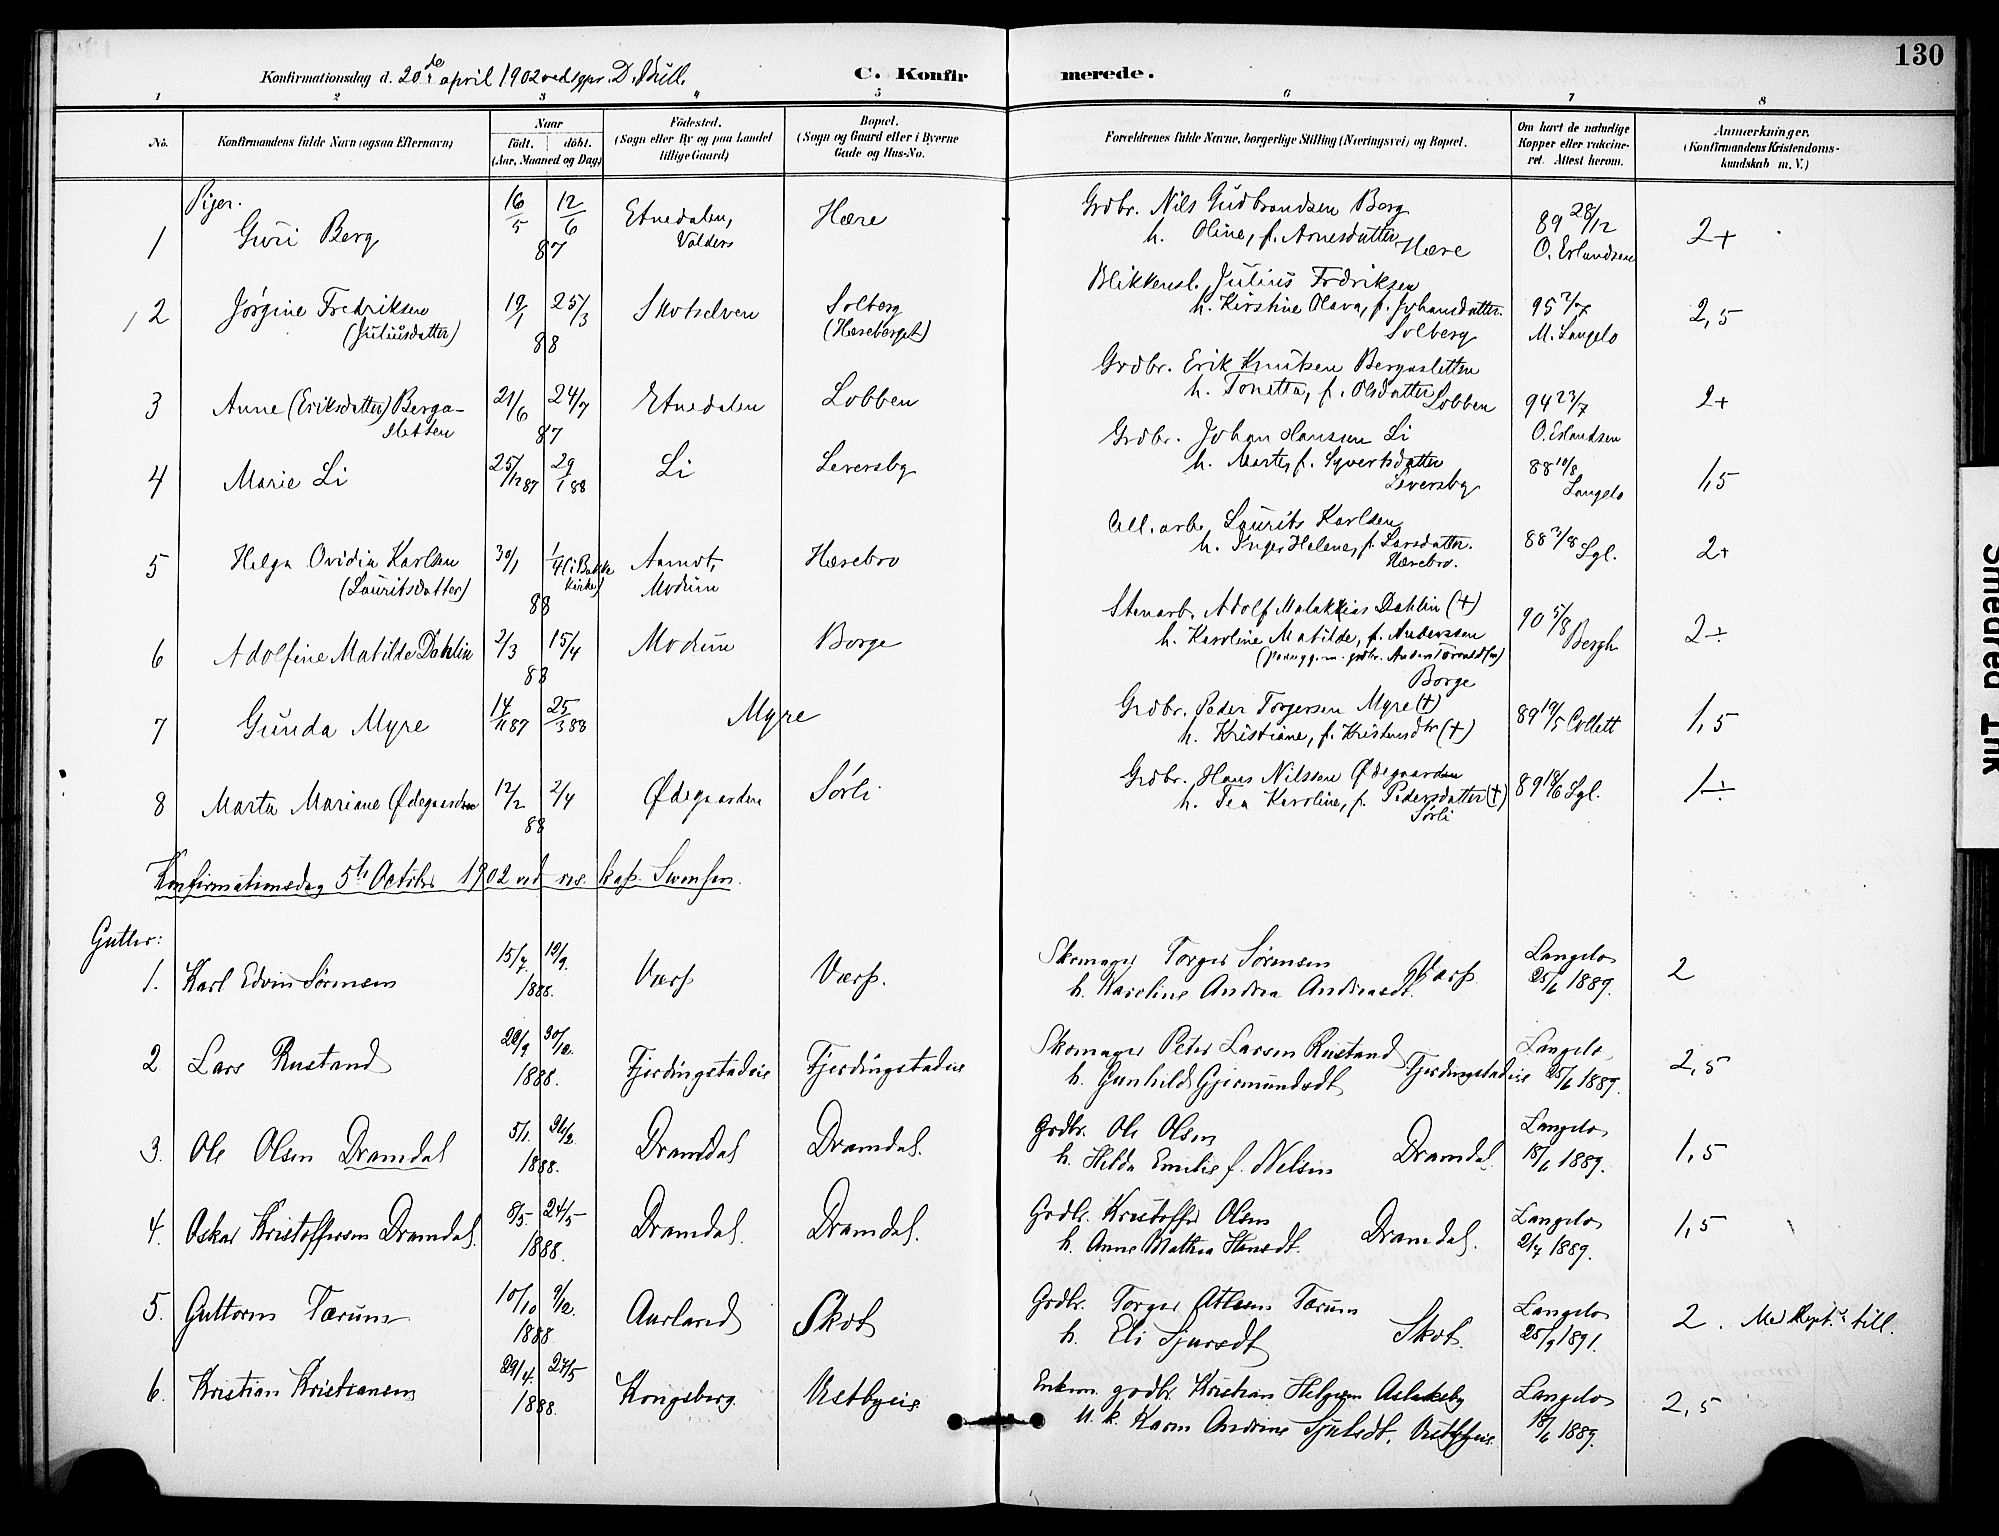 130
Konfirmationsdag d. 20de april 1902 ved sgpr. D.
C. Konfirmerede.
1 2 3 4 5 6 7 8
No.
Konfirmandens fulde Navn (ogsaa Efternavn)
Naar
født. døbt.
(Aar, Maaned og Dag)
Fødested.
(Sogn eller By og paa Landet
tillige Gaard)
Bopæl.
(Sogn og Gaard eller i Byerne
Gade og Hus-No.
Forældrenes fulde Navne, borgerlige Stilling (Næringsvei) og Bopæl.
Om havt de naturlige
Kopper eller vakcine-
ret. Attest herom.
Anmærkninger.
(Konfirmandens Kristendoms-
kundskab m. V.)
Piger.
1 Guri Berg 16/5 12/6 87 Etnedalen, Valders Hære
Grdbr. Nils Gudbrandsen Berg
h. Oline, f. Arnesdatter Hære
89 28/12 O. Erlandsen 2+
2 Jørgine Fredriksen (Juliusdatter) 19/1 25/3 88 Skotselven Solberg (Hæreberget)
Blikkensl. Julius Fredriksen
h. Kirstine Olava, f. Johansdatter.
Solberg
95 2/7 M. Langelo 2,5
3 Anne (Eriksdatter) Berga-
sletten 21/6 24/7 87 Etnedalen Lobben
Grdbr. Erik Knutsen Bergasletten
h. Tonetta, f. Olsdatter Lobben
94 23/7 O. Erlandsen 2+
4 Marie Li 25/12 87 29/1 88 Li Leversby
Grdbr. Johan Hanssen Li
h. Marte, f. Syvertsdatter
Leversby
88 10/8 Langelo 1,5
5 Helga Ovidia Karlsen (Lauritsdatter) 30/1 1/4 (i Bakke Kirke) 88 Aamot, Modum Hærebro
Cell. arb. Laurits Karlsen
h. Inger Helene, f. Larsdatter.
Hærebro.
88 7/8 Lgl. 2+
6 Adolfine Matilde Dahlin 2/3 15/4 88 Modum Borge
Stenarb. Adolf Malakias Dahlin (+)
h. Karoline Matilde, f. Anderssen
Borge
90 5/8 Bergh 2÷
7 Gunda Myre 14/11 87 25/3 88 Myre
Grdbr. Peder Torgersen Myre (+)
h. Kristiane, f. Kristensdtr (+)
89 19/5 Collett 1,5
8 Marta Mariane Ødegaarden 12/2 2/4 88 Ødegaarden Sørli
Grdbr. Hans Nilssen Ødegaarden
h. Tea Karoline, f. Pedersdatter (+)
Sørli
89 18/6 Lgl. 1÷
Konfirmationsdag 5te October 1902 ved res. kap. Svensen.
Gutter:
1. Karl Edvin Sørensen 15/7. 19/9. 1888. Værp Værp.
Skomager Torger Sørensen
h. Karoline Andrea Andreasdt. Værp.
Langelo 25/6 1889. 2
2 Lars Rustand 29/9 30/12. 1888. Fjerdingstadeie Fjerdingstadeie
Skomager Peter Larsen Rustand
h. Gunhild Gjermundsdt Fjerdingstadeie
Langelo 25/6 1889. 2,5
3. Ole Olsen Dramdal 5/1. 26/2. 1888. Dramdal Dramdal.
Grdbr. Ole Olsen
h. Hilda Emilie f. Nelsen Dramdal.
Langelo 18/6 1889. 1,5
4. Oskar Kristoffersen Dramdal. 8/5. 24/5 1888. Dramdal. Dramdal.
Grdbr. Kristoffer Olsen
h. Anne Mathea Hansdt. Dramdal.
Langelo 2/7 1889. 1,5
5. Guttorm Tærum 10/10 9/12. 1888. Aurland Skot
Grdbr. Torger Atlesen Tærum
h. Eli Sjursdt Skot.
Langelo 25/9 1891. 2.
6. Kristian Kristiansen 29/4. 27/5 1888. Kongsberg. Vestbyeie.
Enkem. grdbr. Kristian Helgesen Aslaksby
U. k. Karen Andrine Sjulsdt, Vestbyeie.
Langelo 18/6 1889. 2,5
Smedrud Ink